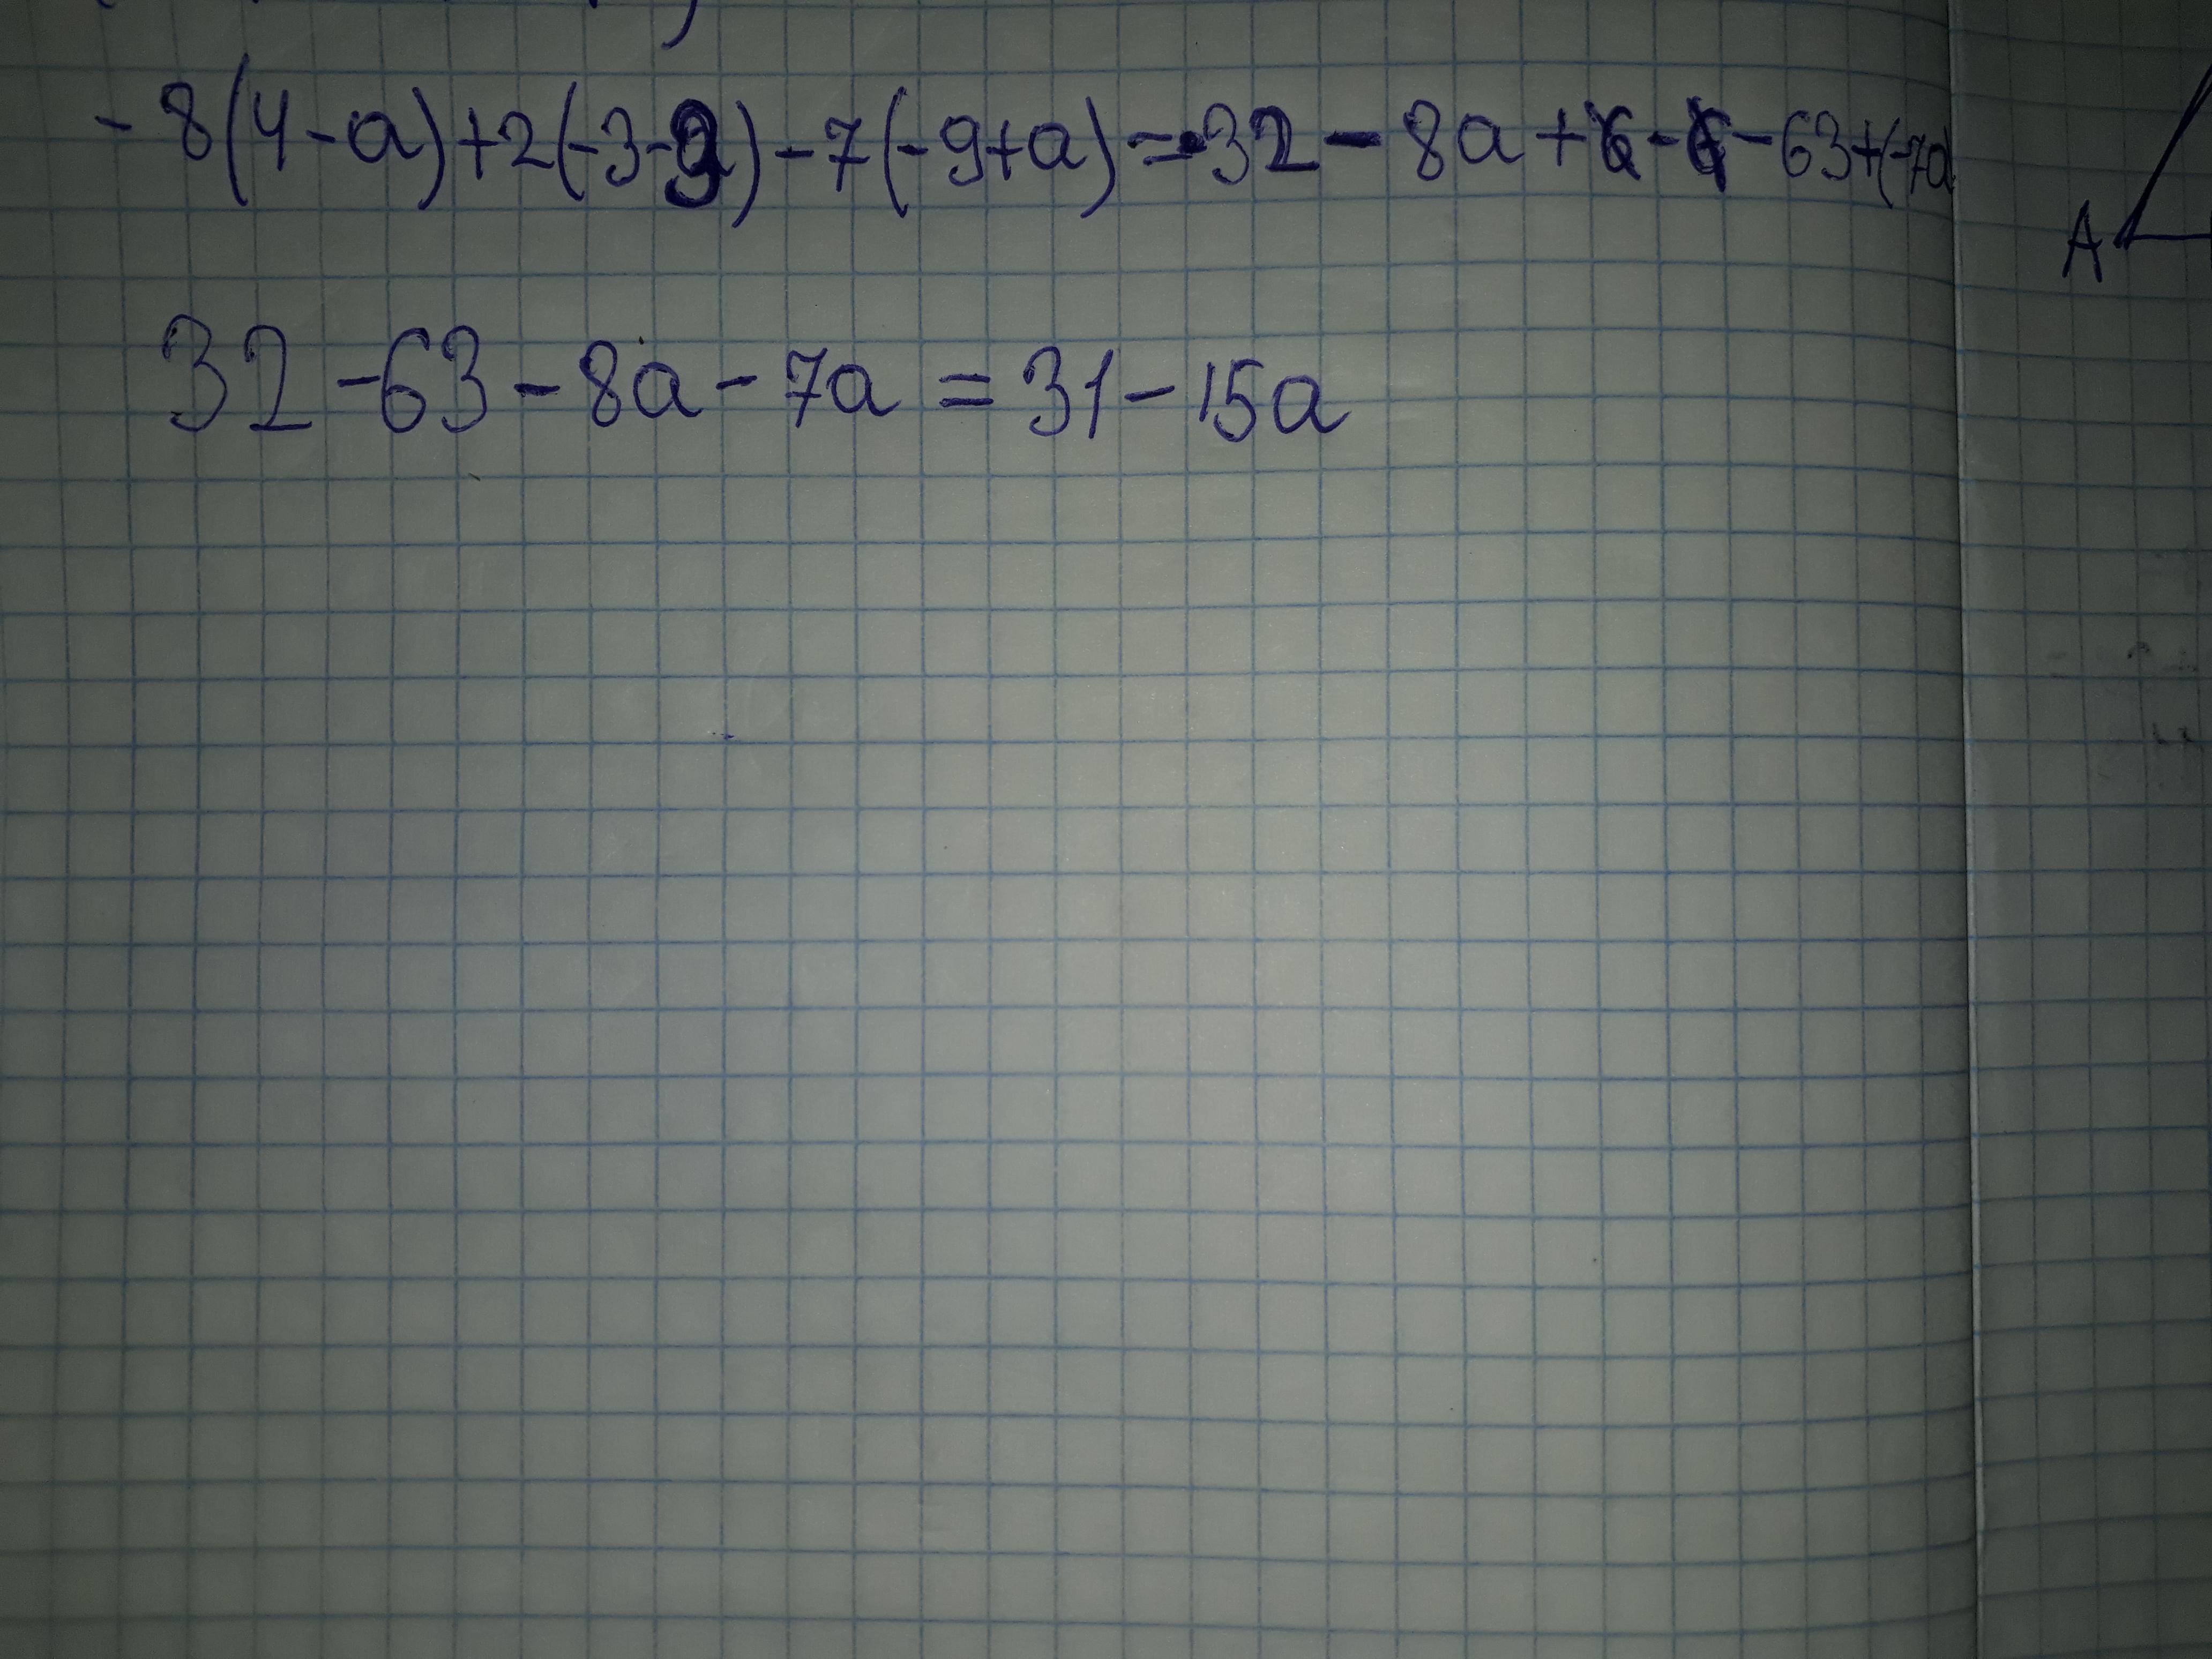 -8(4-a)+2(-3-a)-7(-9+a)=-32-8a+6-6-63+(-7a
32-63-8a-7a=31-15a
A